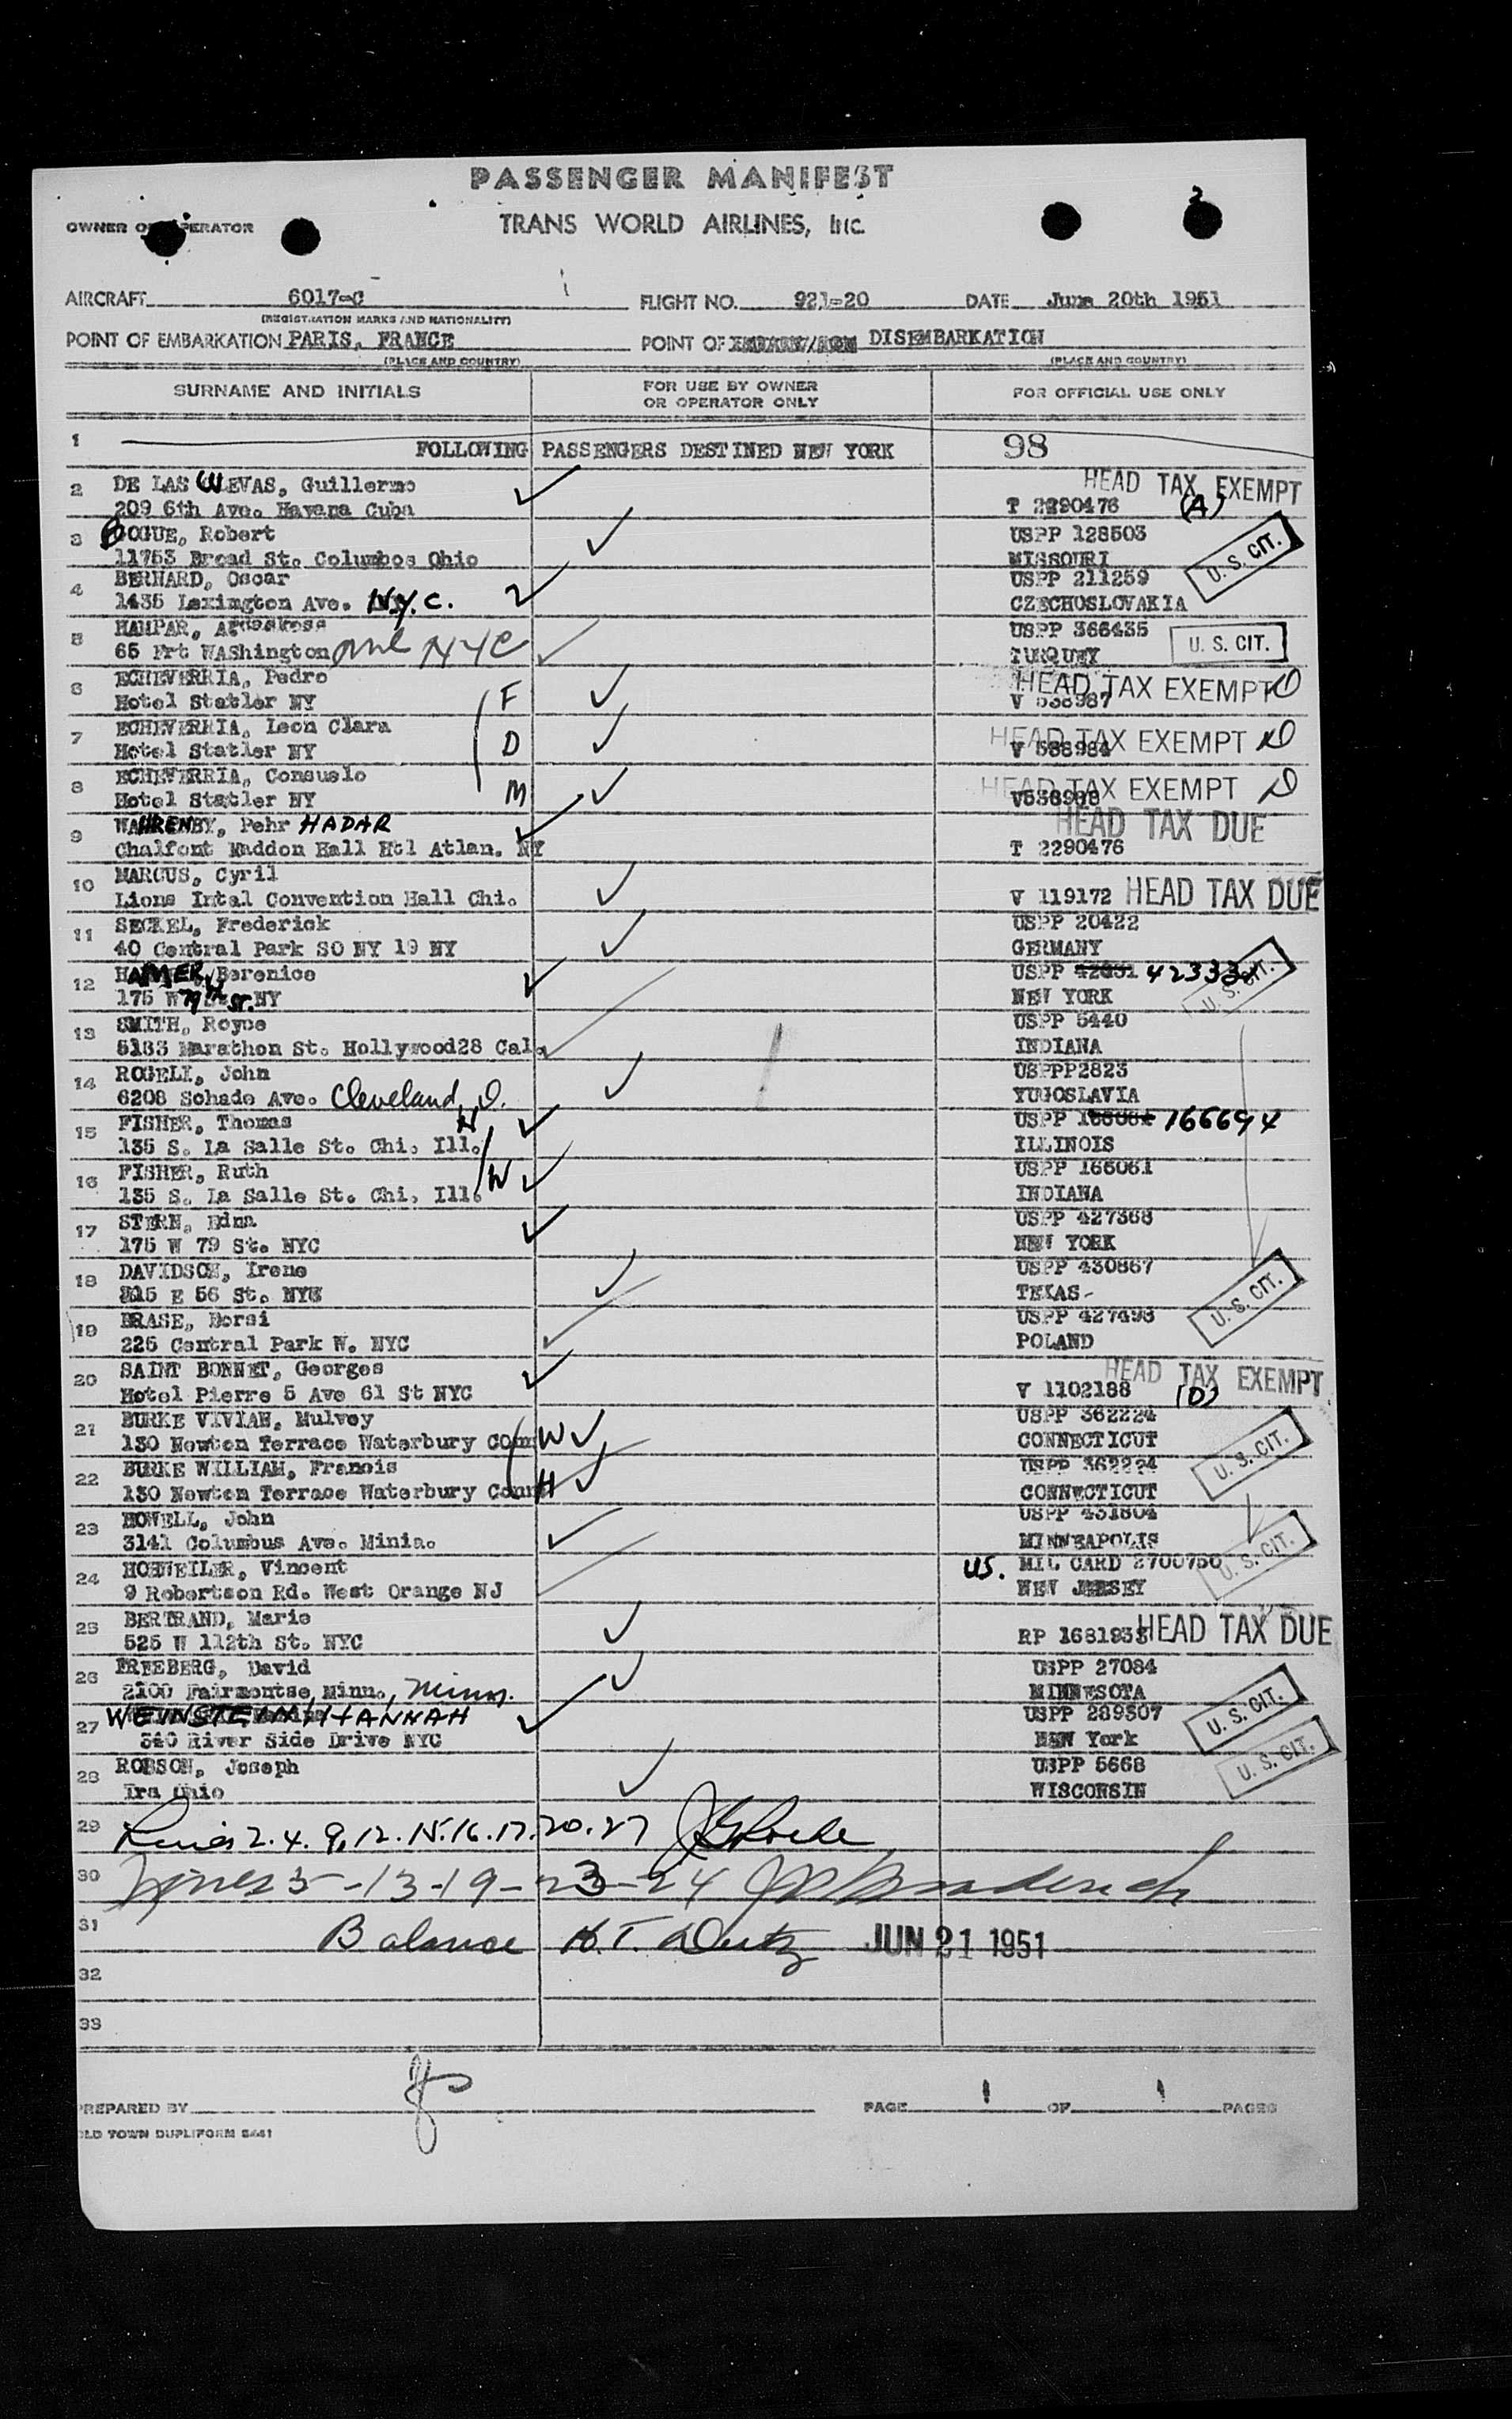 PASSENGER MANIFEST
2
OWNER OR OPERATOR
TRANS WORLD AIRLINES, Inc.
AIRCRAFT 6017-C FLIGHT NO. 921-20 DATE June 20th 1951
(REGISTRATION MARKS AND NATIONALITY)
POINT OF EMBARKATION PARIS, FRANCE POINT OF DISEMBARKATION
(PLACE AND COUNTRY) (PLACE AND COUNTRY)
SURNAME AND INITIALS
FOR USE BY OWNER
OR OPERATOR ONLY
FOR OFFICIAL USE ONLY
1 FOLLOWING PASSENGERS DESTINED NEW YORK 98
2 DE LAS CUEVAS, Guillermo HEAD TAX EXEMPT
209 6th Ave. Havana Cuba T 2290476 (A)
3 BOGUE, Robert USPP 128503
11753 Broad St. Columbos Ohio MISSOURI U. S. CIT.
4 BERNARD, Oscar USPP 211259
1435 Lexington Ave. N.Y.C. CZECHOSLOVAKIA
5 HAMPAR, USPP 366435
65 Frt WAShington ave NYC TURQUEY U. S. CIT.
6 ECHEVERRIA, Pedro HEAD TAX EXEMPT D
Hotel Statler NY F V 538987
7 ECHEVERRIA, Leon Clara
Hotel Statler NY D V 538984 HEAD TAX EXEMPT D
8 ECHEVERRIA, Consuelo HEAD TAX EXEMPT D
Hotel Statler NY M V538988
9 WAHRENBY, Pehr HADAR HEAD TAX DUE
Chalfont Haddon Hall Htl Atlan. NY T 2290476
10 MARCUS, Cyril
Lions Intal Convention Hall Chi. V 119172 HEAD TAX DUE
11 SECKEL, Frederick USPP 20422
40 Central Park SO NY 19 NY GERMANY
12 HAMMER, Berenice USPP 42333 U. S. CIT.
175 W 79th St. NY NEW YORK
13 SMITH, Royce USPP 5440
5133 Marathon St. Hollywood28 Cal. INDIANA
14 ROGELJ, John USPPP2823
6208 Schade Ave. Cleveland, O. YUGOSLAVIA
15 FISHER, Thomas H USPP 166694
135 S. La Salle St. Chi. Ill. ILLINOIS
16 FISHER, Ruth W USPP 165061
135 S. La Salle St. Chi, Ill. INDIANA
17 STERN, Edna USPP 427368
175 W 79 St. NYC NEW YORK
18 DAVIDSON, Irene USPP 430867
315 E 56 St. NYC TEXAS- U. S. CIT.
19 BRASE, Dorsi USPP 427493
225 Central Park W. NYC POLAND
20 SAINT BONNET, Georges HEAD TAX EXEMPT
Hotel Pierre 5 Ave 61 St NYC V 1102188 (D)
21 BURKE VIVIAN, Mulvey USPP 362224
130 Newton Terrace Waterbury Conn W CONNECTICUT
22 BURKE WILLIAM, Francis USPP 362224 U. S. CIT.
130 Newton Terrace Waterbury Conn H CONNECTICUT
23 HOWELL, John USPP 431804
3141 Columbus Ave. Minia. MINNEAPOLIS
24 HOHWEILER, Vincent US. MIL CARD 2700750 U. S. CIT.
9 Robertson Rd. West Orange NJ NEW JERSEY
25 BERTRAND, Marie
525 W 112th St. NYC RP 1681933 HEAD TAX DUE
26 FREEBERG, David USPP 27084
2100 Fairmontse, Minn., Minn. MINNESOTA
27 WEINSTEIN HANNAH USPP 289307 U. S. CIT.
340 River Side Drive NYC NEW York
28 ROBSON, Joseph USPP 5668 U. S. CIT.
Ira Ohio WISCONSIN
29 Lines 2. 4. 9, 12. 15. 16. 17. 20. 27
30 Lines 5-13-19-23-24
31 Balance JUN 21 1951
32
33
PREPARED BY PAGE 1 OF 1 PAGES
OLD TOWN DUPLIFORM 5441